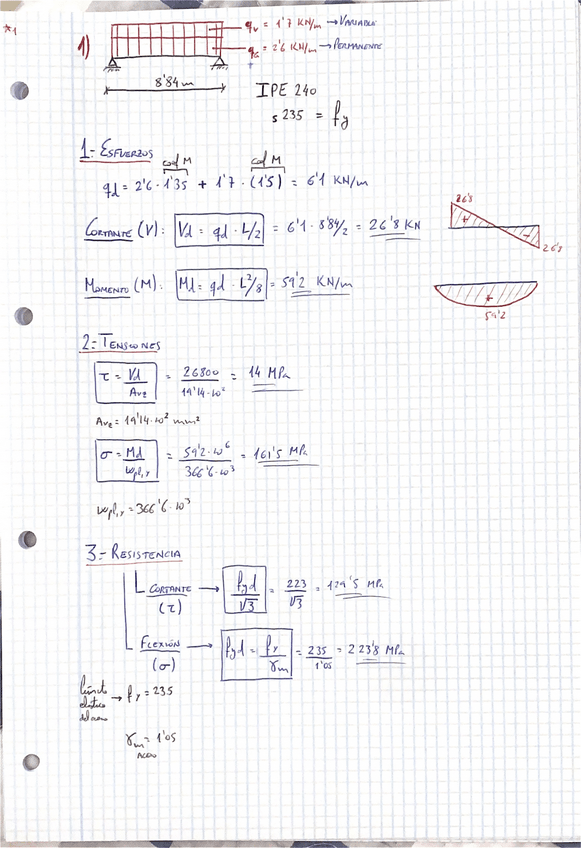 *1
1)
qv = 1'7 KN/m → VARIABLE
qG = 2'6 KN/m → PERMANENTE
8'84 m
IPE 240
s 235 = fy
1- ESFUERZOS
coef M
coef M
qd = 2'6 · 1'35 + 1'7 · (1'5) = 6'1 KN/m
CORTANTE (V): Vd = qd · L/2 = 6'1 · 8'84/2 = 26'8 KN
26'8
+
-
26'8
MOMENTO (M): Md = qd · L²/8 = 59'2 KN/m
+
59'2
2- TENSIONES
τ = Vd/Avz = 26800/19'14·10² = 14 MPa
Avz = 19'14·10² mm²
σ = Md/wpl,y = 59'2·10⁶/366'6·10³ = 161'5 MPa
wpl,y = 366'6·10³
3- RESISTENCIA
CORTANTE → fyd/√3 = 223/√3 = 129'5 MPa
(τ)
FLEXIÓN → fyd = fy/γm = 235/1'05 = 223'8 MPa
(σ)
límite elástico del acero → fy = 235
γm = 1'05
ACERO